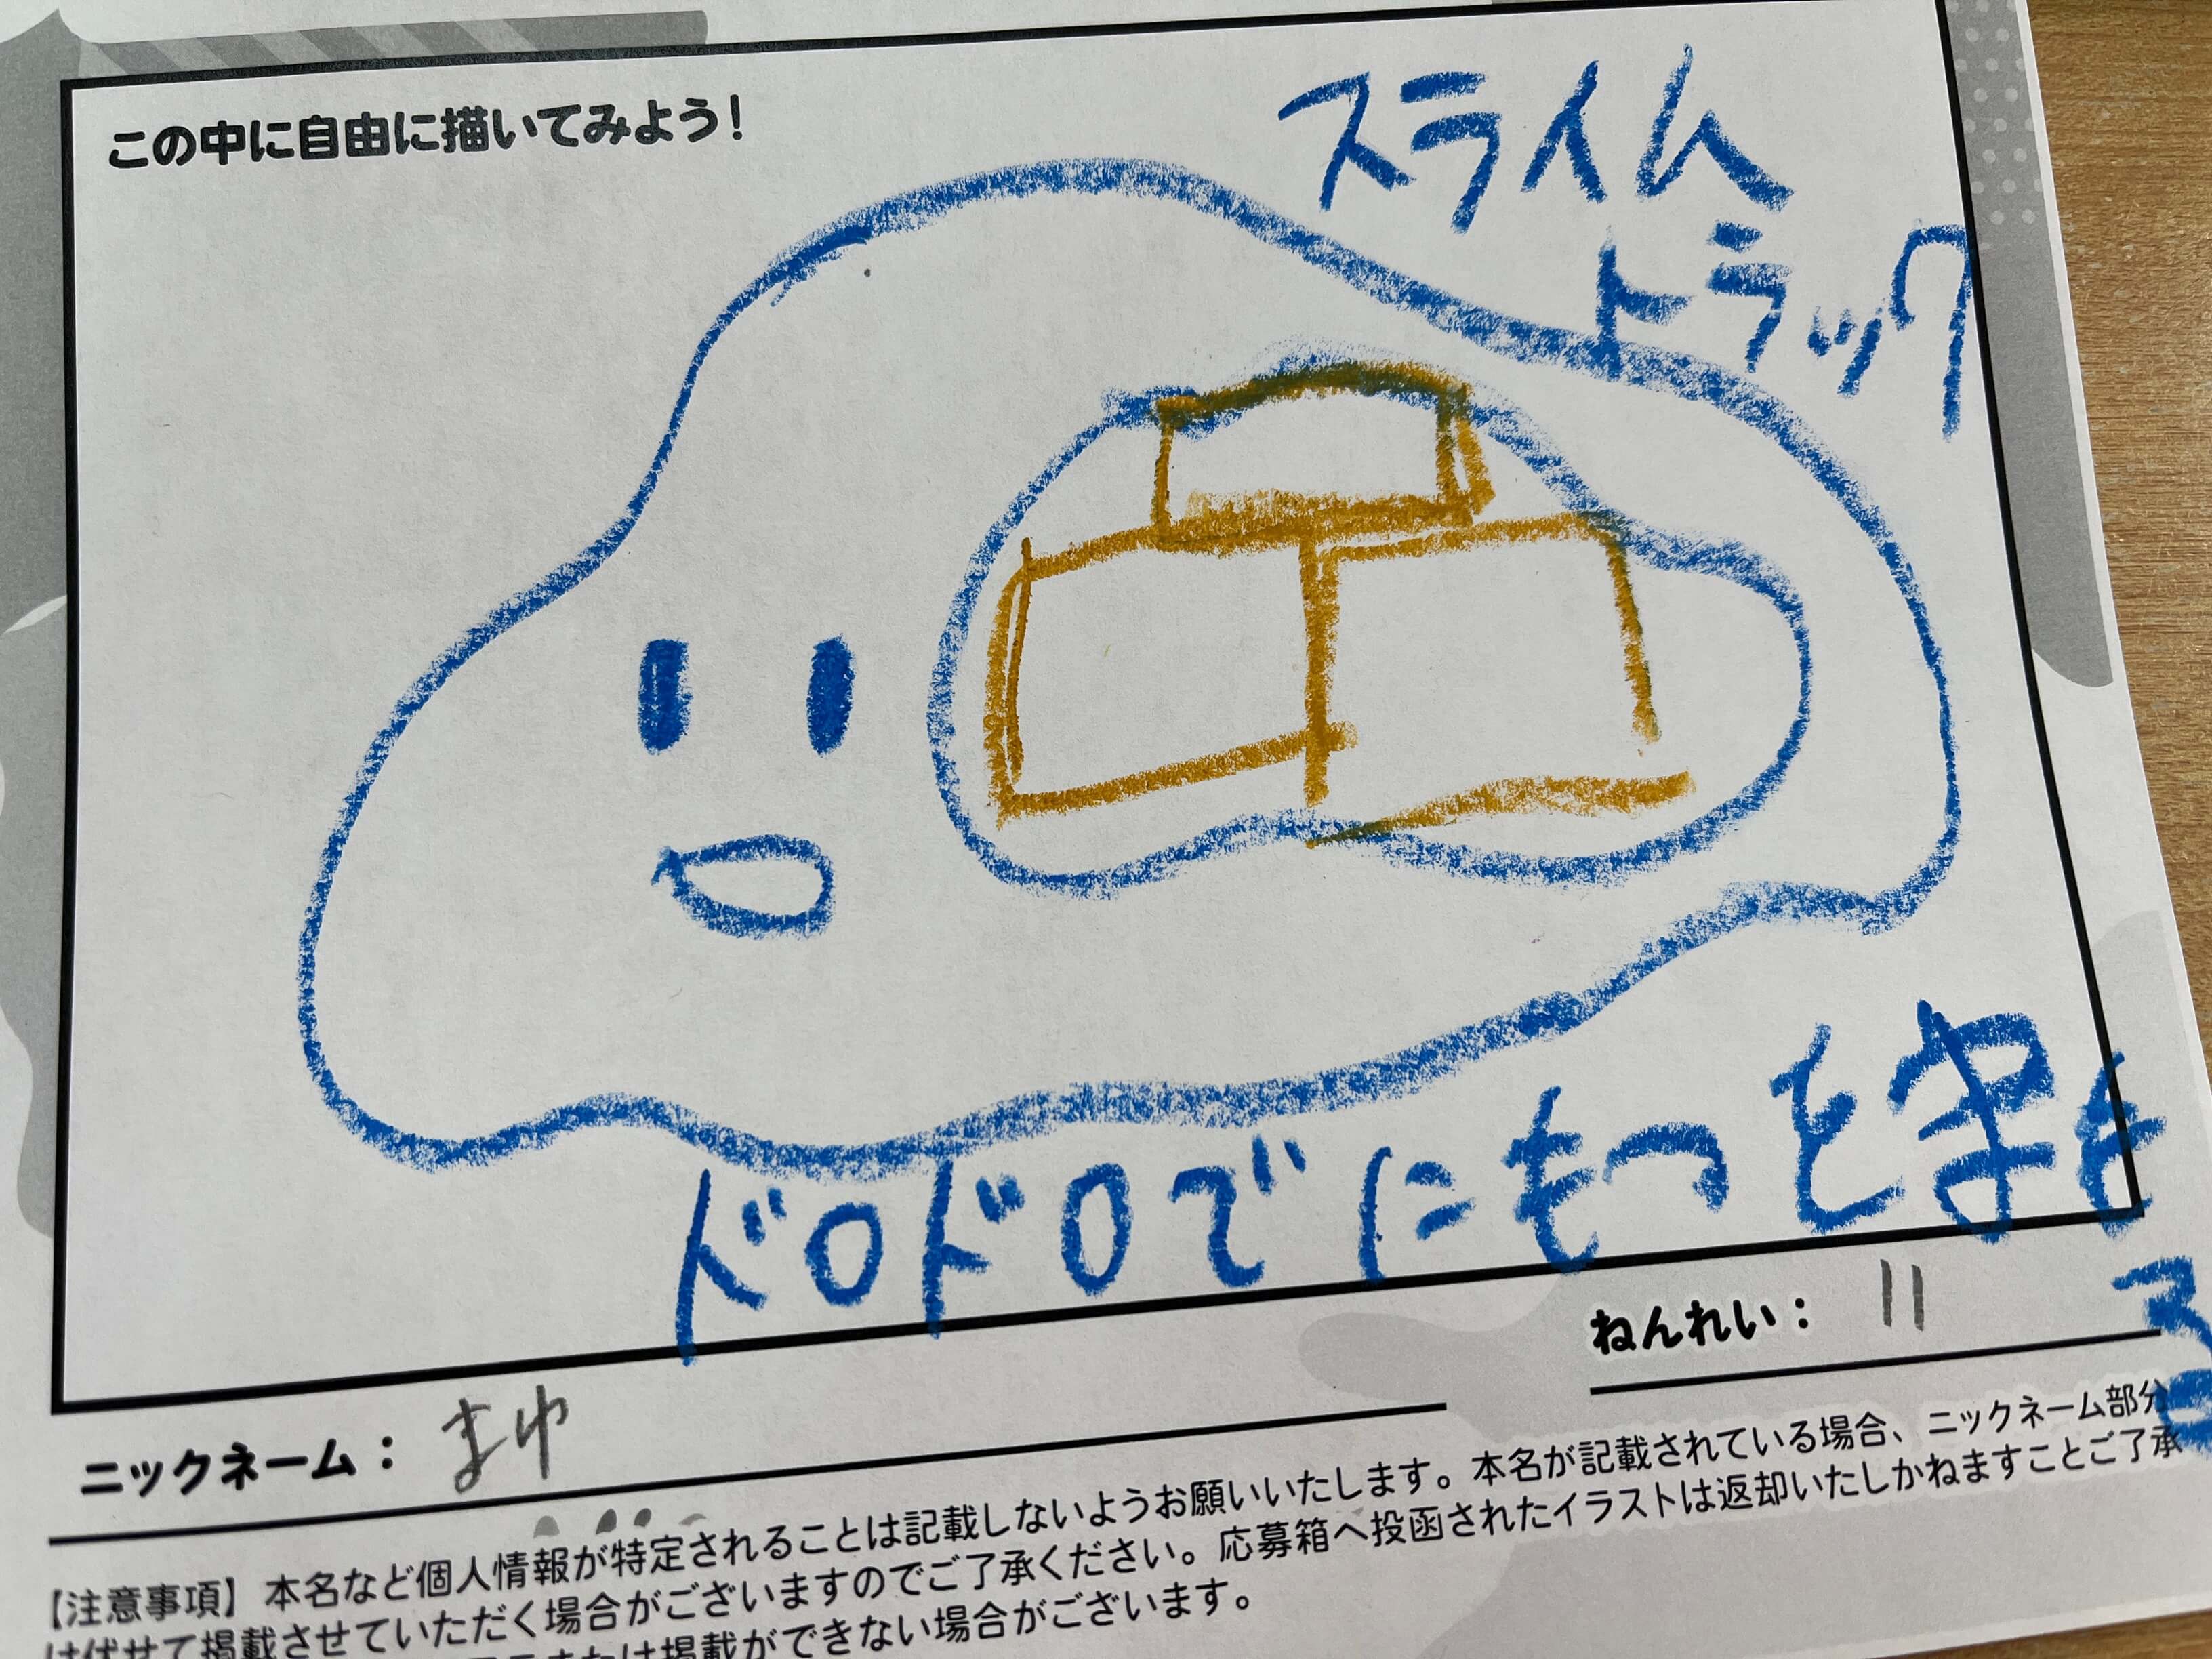 この中に自由に描いてみよう！
スライム
トラック
ドロドロでにもつを守も
る
ねんれい： 11
ニックネーム： まゆ
【注意事項】本名など個人情報が特定されることは記載しないようお願いいたします。本名が記載されている場合、ニックネーム部分
は伏せて掲載させていただく場合がございますのでご了承ください。応募箱へ投函されたイラストは返却いたしかねますことご了承
または掲載ができない場合がございます。